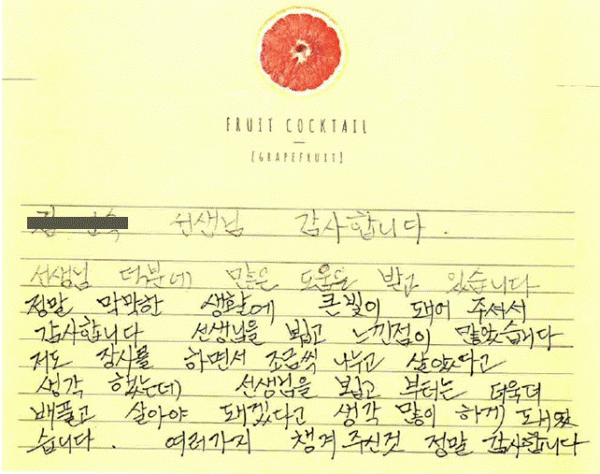 FRUIT COCKTAIL
[GRAPEFRUIT]
선생님 감사합니다.
선생님 덕분에 많은 도움을 받고 있습니다
정말 막막한 생활에 큰빛이 돼어 주셔서
감사합니다 선생님을 뵙고 느낀점이 많았습니다
저도 장사를 하면서 조금씩 나누고 살았다고
생각 했는데 선생님을 뵙고 부터는 더욱더
배풀고 살아야 돼겠다고 생각 많이 하게 돼었
습니다. 여러가지 챙겨 주신것 정말 감사합니다